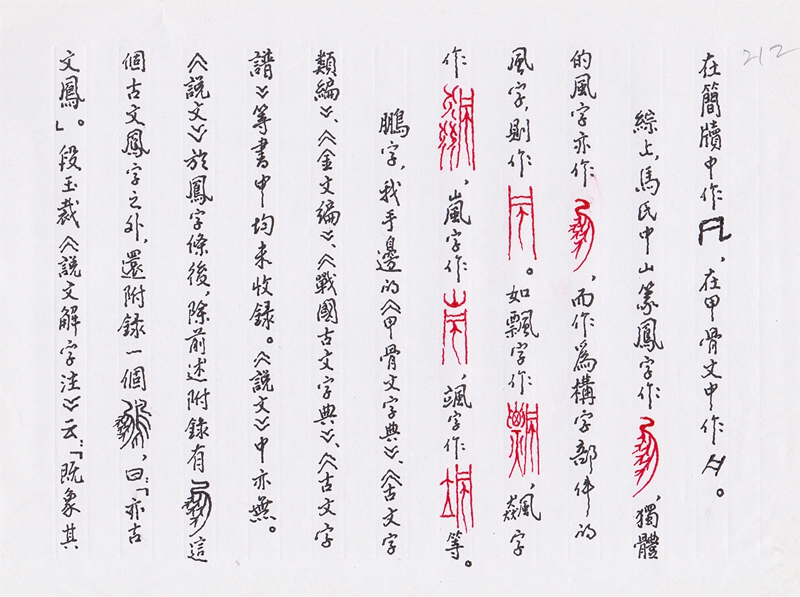 212
在簡牘中作，在甲骨文中作。
綜上，馬氏中山篆鳳字作，獨體
的風字亦作，而作為構字部件的
風字，則作。如飄字作，飆字
作，嵐字作，颯字作等。
鵬字，我手邊的《甲骨文字典》、《古文字
類編》、《金文編》、《戰國古文字典》、《古文字
譜》等書中均未收錄。《說文》中亦無。
《說文》於鳳字條後，除前述附錄有這
個古文鳳字之外，還附錄一個，曰：「亦古
文鳳」。段玉裁《說文解字注》云：「既象其